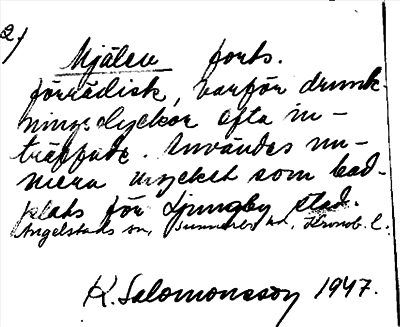 2)
Mjälen forts.
förrädisk, varför drunk-
ningsolyckor ofta in-
träffade. Användes nu-
mera mycket som bad-
plats för Ljungby stad.
Angelstads sn, Sunnerbo hd, Kronob. l.
K. Salomonsson 1947.